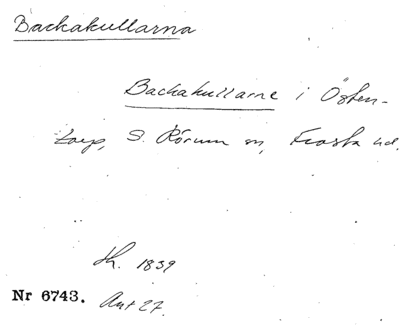 Backakullarna
Backakullarne i Östen-
torp, S. Rörum sn, Frosta hd.
Sk. 1839
Nr 6743. Akt 27.